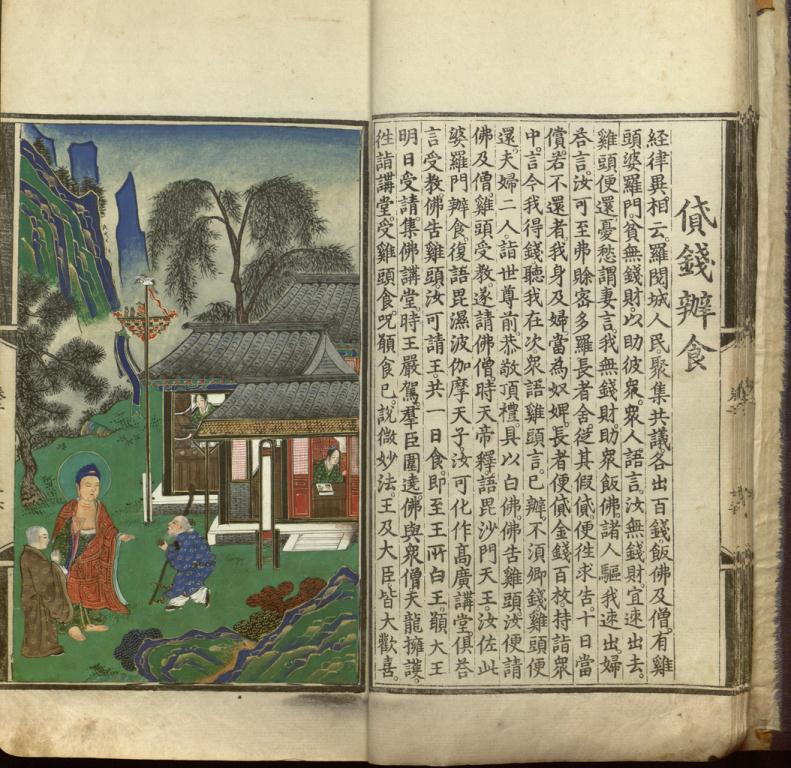 貸錢辦食
經律異相云。羅閱城人民。聚集共議。各出百錢。飯佛及僧。有雞
頭婆羅門。貧無錢財。以助彼衆。衆人語言。汝無錢財。宜速出去。
雞頭便還。憂愁謂妻言。我無錢財。助衆飯佛。諸人驅我速出。婦
荅言。汝可至弗賒密多羅長者舍。從其假貸。便徃求告。十日當
償。若不還者。我身及婦。當為奴婢。長者便貸金錢百枚。持詣衆
中。言今我得錢。聽我在次。衆語雞頭言。已辦不須卿錢。雞頭便
還。夫婦二人。詣世尊前。恭敬頂禮。具以白佛。佛告雞頭。汝便請
佛及僧。雞頭受教。遂請佛僧。時天帝釋。語毘沙門天王。汝佐此
婆羅門辦食。復語毘濕波伽摩天子。汝可化作高廣講堂。俱荅
言受教。佛告雞頭。汝可請王。共一日食。即至王所白王。願大王
明日受請。集佛講堂。時王嚴駕。羣臣圍遶。佛與衆僧。天龍擁護。
徃詣講堂。受雞頭食。呪願食已。說微妙法。王及大臣。皆大歡喜。